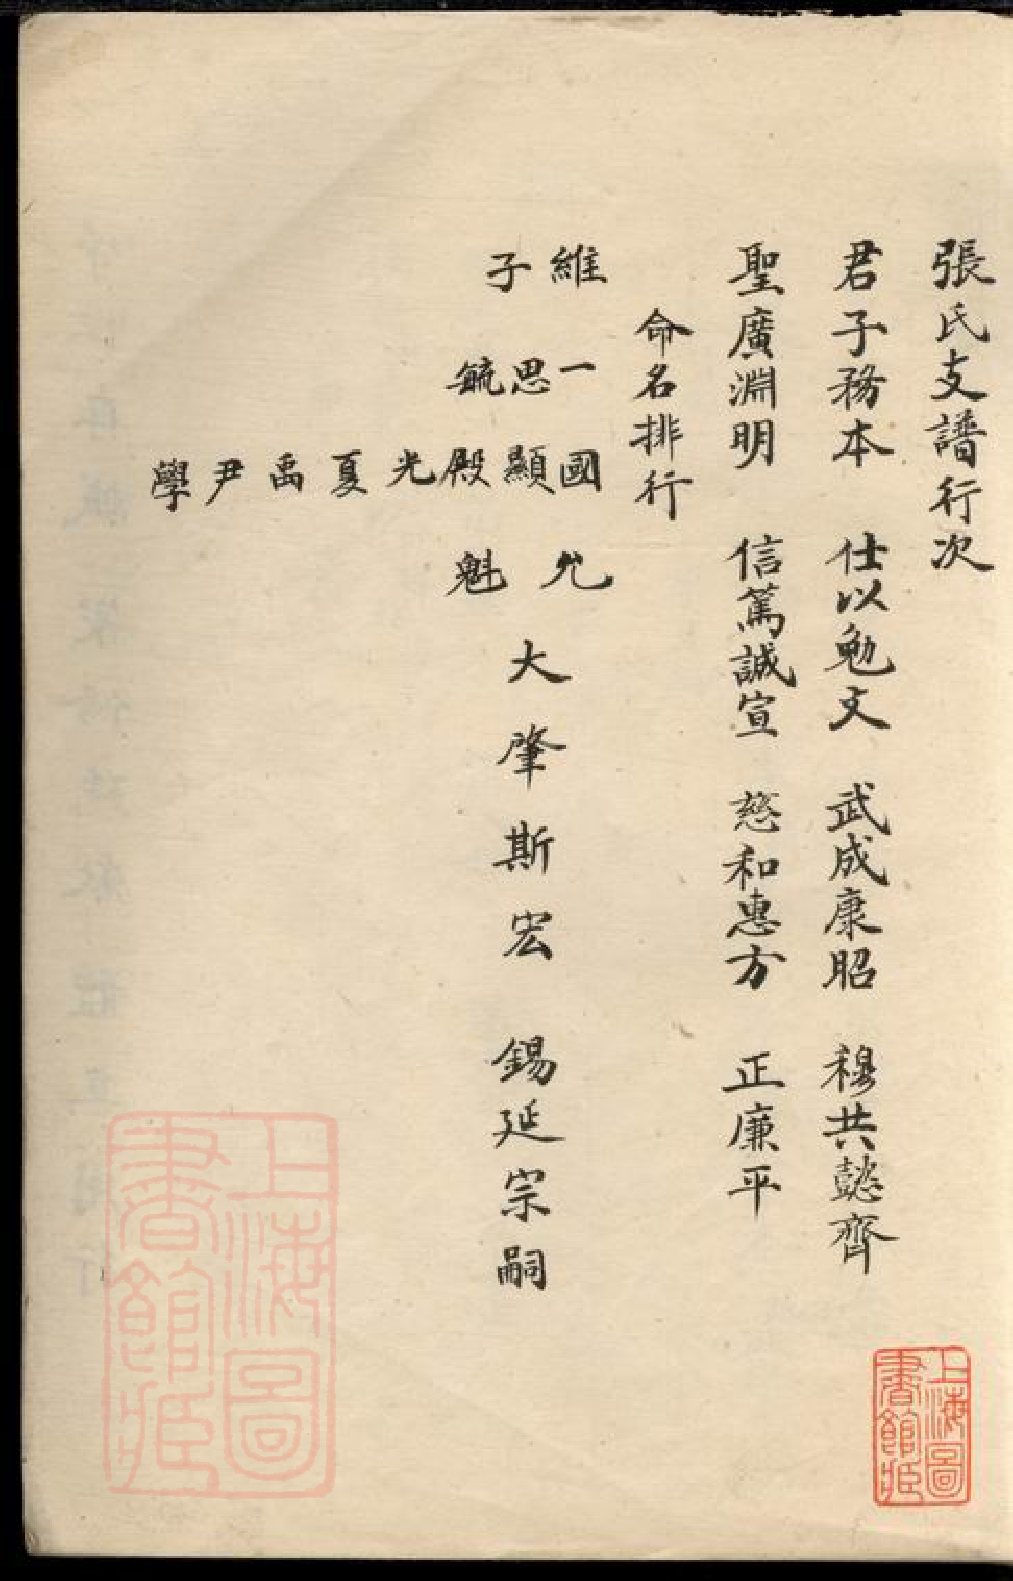 張氏支譜行次
君子務本 仕以勉文 武成康昭 穆共懿齊
聖廣淵明 信篤誠宣 慈和惠方 正廉平
命名排行
維 一 國 允
子 思 顯
毓 殿 魁
光
夏
禹
尹
學
大 肇 斯 宏 錫 延 宗 嗣
上海圖書館藏
上海圖書館藏